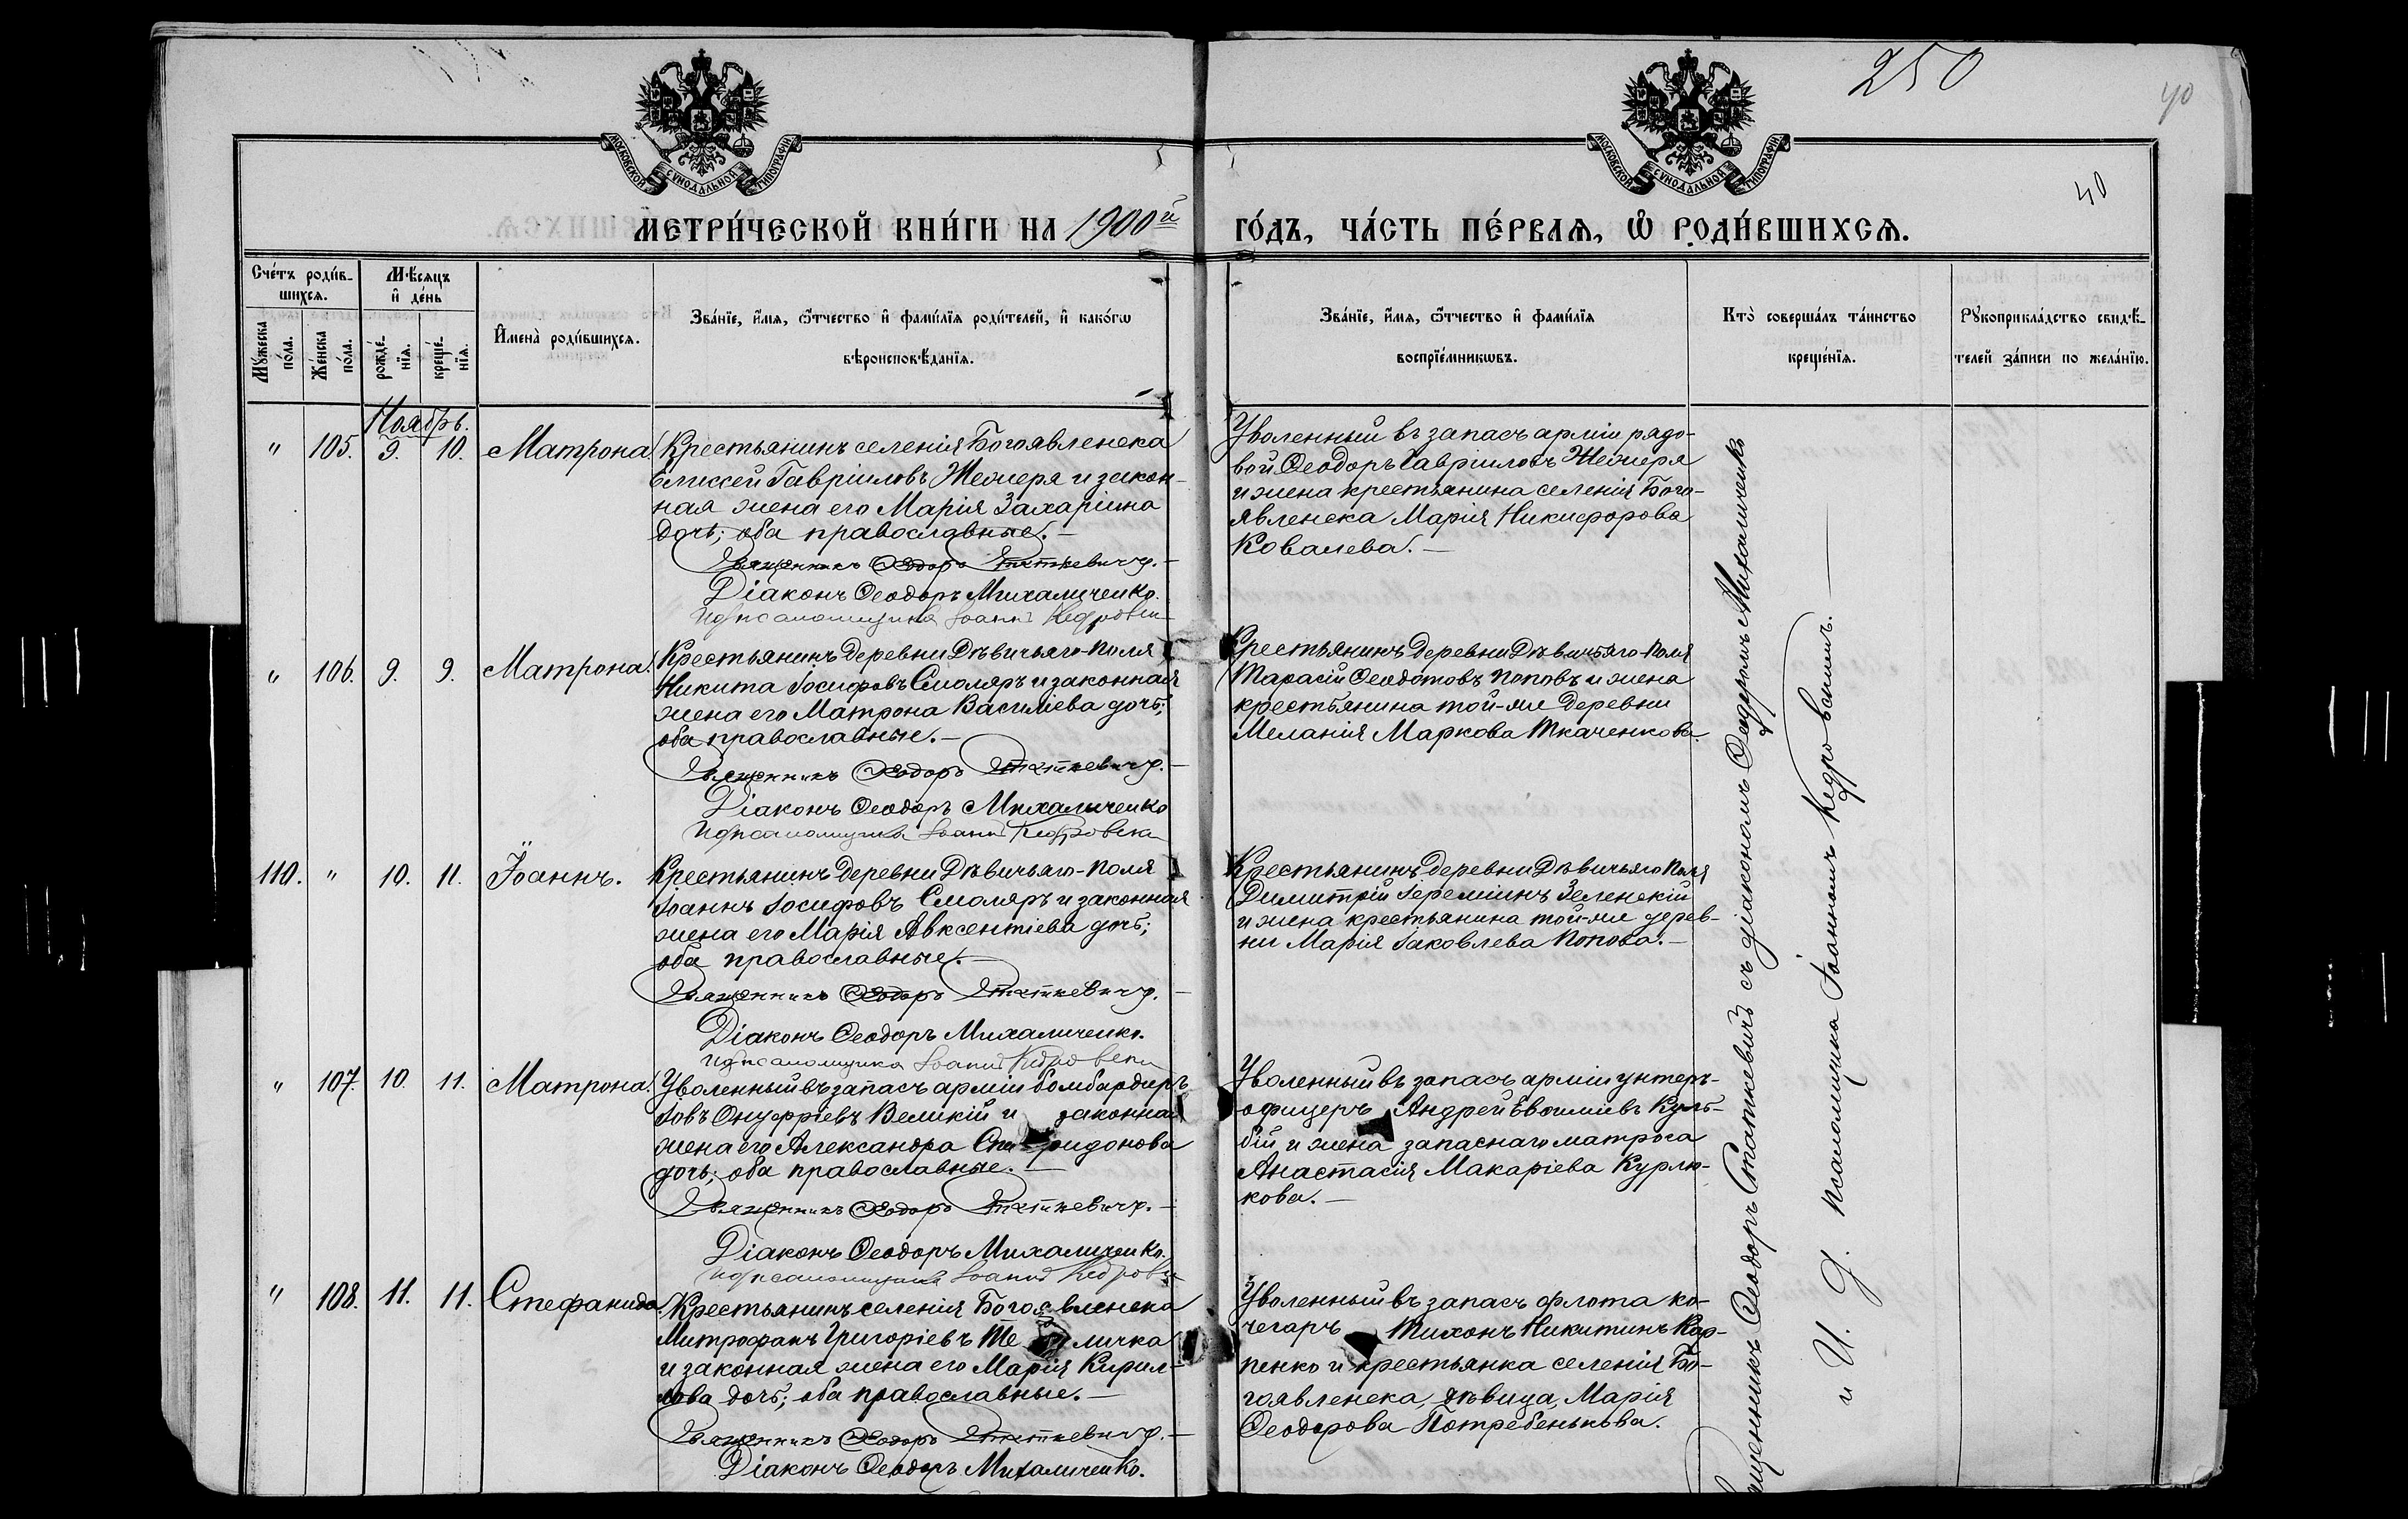 250
40
40
МОСКОВСКОЙ СѴНОДАЛЬНОЙ ТИПОГРАФІИ
МОСКОВСКОЙ СѴНОДАЛЬНОЙ ТИПОГРАФІИ
МЕТРИ́ЧЕСКОЙ КНИ́ГИ НА 1900й ГО́ДЪ, ЧА́СТЬ ПЕ́РВАѦ, Ѡ҆ РОДИ́ВШИХСѦ.
Сче́тъ роди́в-
шихсѧ.
Мѣ́сѧцъ
и҆ де́нь
Мꙋ́жеска
по́ла.
Же́нска
по́ла.
рожде́-
нїѧ.
креще́-
нїѧ.
И҆мена̀ роди́вшихсѧ.
Зва́нїе, и҆́мѧ, ѻ҆́тчество и҆ фами́лїѧ роди́телей, и҆ како́гѡ
вѣроисповѣ́данїѧ.
Зва́нїе, и҆́мѧ, ѻ҆́тчество и҆ фами́лїѧ
воспрїе́мникѡвъ.
Кто̀ соверша́лъ та́инство
креще́нїѧ.
Рꙋкоприкла́дство свидѣ́-
телей за́писи по жела́нїю.
Ноябрь.
" 105. 9. 10. Матрона.
Крестьянинъ селенія Богоявленска
Елиссей Гавріиловъ Жежеря и закон-
ная жена его Марія Захаріина
дочь; оба православные.—
Священникъ Ѳеодоръ Статкевичъ.—
Діаконъ Ѳеодоръ Михаличенко.
И д псаломщика Іоаннъ Кедровск
Уволенный въ запасъ арміи рядо-
вой Ѳеодоръ Гавріиловъ Жежеря
и жена крестьянина селенія Бого-
явленска Марія Никифорова
Ковалева.—
" 106. 9. 9. Матрона.
Крестьянинъ деревни Дѣвичьяго-Поля
Никита Іосифовъ Смоляръ и законная
жена его Матрона Василіева дочь;
оба православные.—
Священникъ Ѳеодоръ Статкевичъ.—
Діаконъ Ѳеодоръ Михаличенко
И д псаломщика Іоаннъ Кедровск
Крестьянинъ деревни Дѣвичьяго-Поля
Тарасій Ѳеодотовъ Поповъ и жена
крестьянина той-же деревни
Меланія Маркова Ткаченкова.
110. " 10. 11. Іоаннъ.
Крестьянинъ деревни Дѣвичьяго-Поля
Іоаннъ Іосифовъ Смоляръ и законная
жена его Марія Авксентіева дочь;
оба православные.—
Священникъ Ѳеодоръ Статкевичъ.—
Діаконъ Ѳеодоръ Михаличенко.
И д псаломщика Іоаннъ Кедровск
Крестьянинъ деревни Дѣвичьяго Поля
Димитрій Іереміинъ Зеленскій
и жена крестьянина той-же дерев-
ни Марія Іаковлева Попова.—
" 107. 10. 11. Матрона.
Уволенный въ запасъ арміи бомбардиръ
Іовъ Онуфріевъ Великій и законная
жена его Александра Спиридонова
дочь; оба православные.—
Священникъ Ѳеодоръ Статкевичъ.—
Діаконъ Ѳеодоръ Михаличенко.
И д псаломщика Іоаннъ Кедровск
Уволенный въ запасъ арміи унтеръ-
офицеръ Андрей Евѳиміевъ Куль-
бій и жена запаснаго матроса
Анастасія Макаріева Курлю-
кова.—
" 108. 11. 11. Стефанида.
Крестьянинъ селенія Богоявленска
Митрофанъ Григоріевъ
и законная жена его Марія Кирил-
лова дочь; оба православные.—
Священникъ Ѳеодоръ Статкевичъ.—
Діаконъ Ѳеодоръ Михаличенко.
Уволенный въ запасъ флота ко-
чегаръ Тихонъ Никитинъ Кар-
пенко и крестьянка селенія Бо-
гоявленска, дѣвица, Марія
Ѳеодорова Потребенькова.
Священникъ Ѳеодоръ Статкевичъ съ діакономъ Ѳеодоромъ Михаличенко
и И. д. псаломщика Іоанномъ Кедровскимъ.—